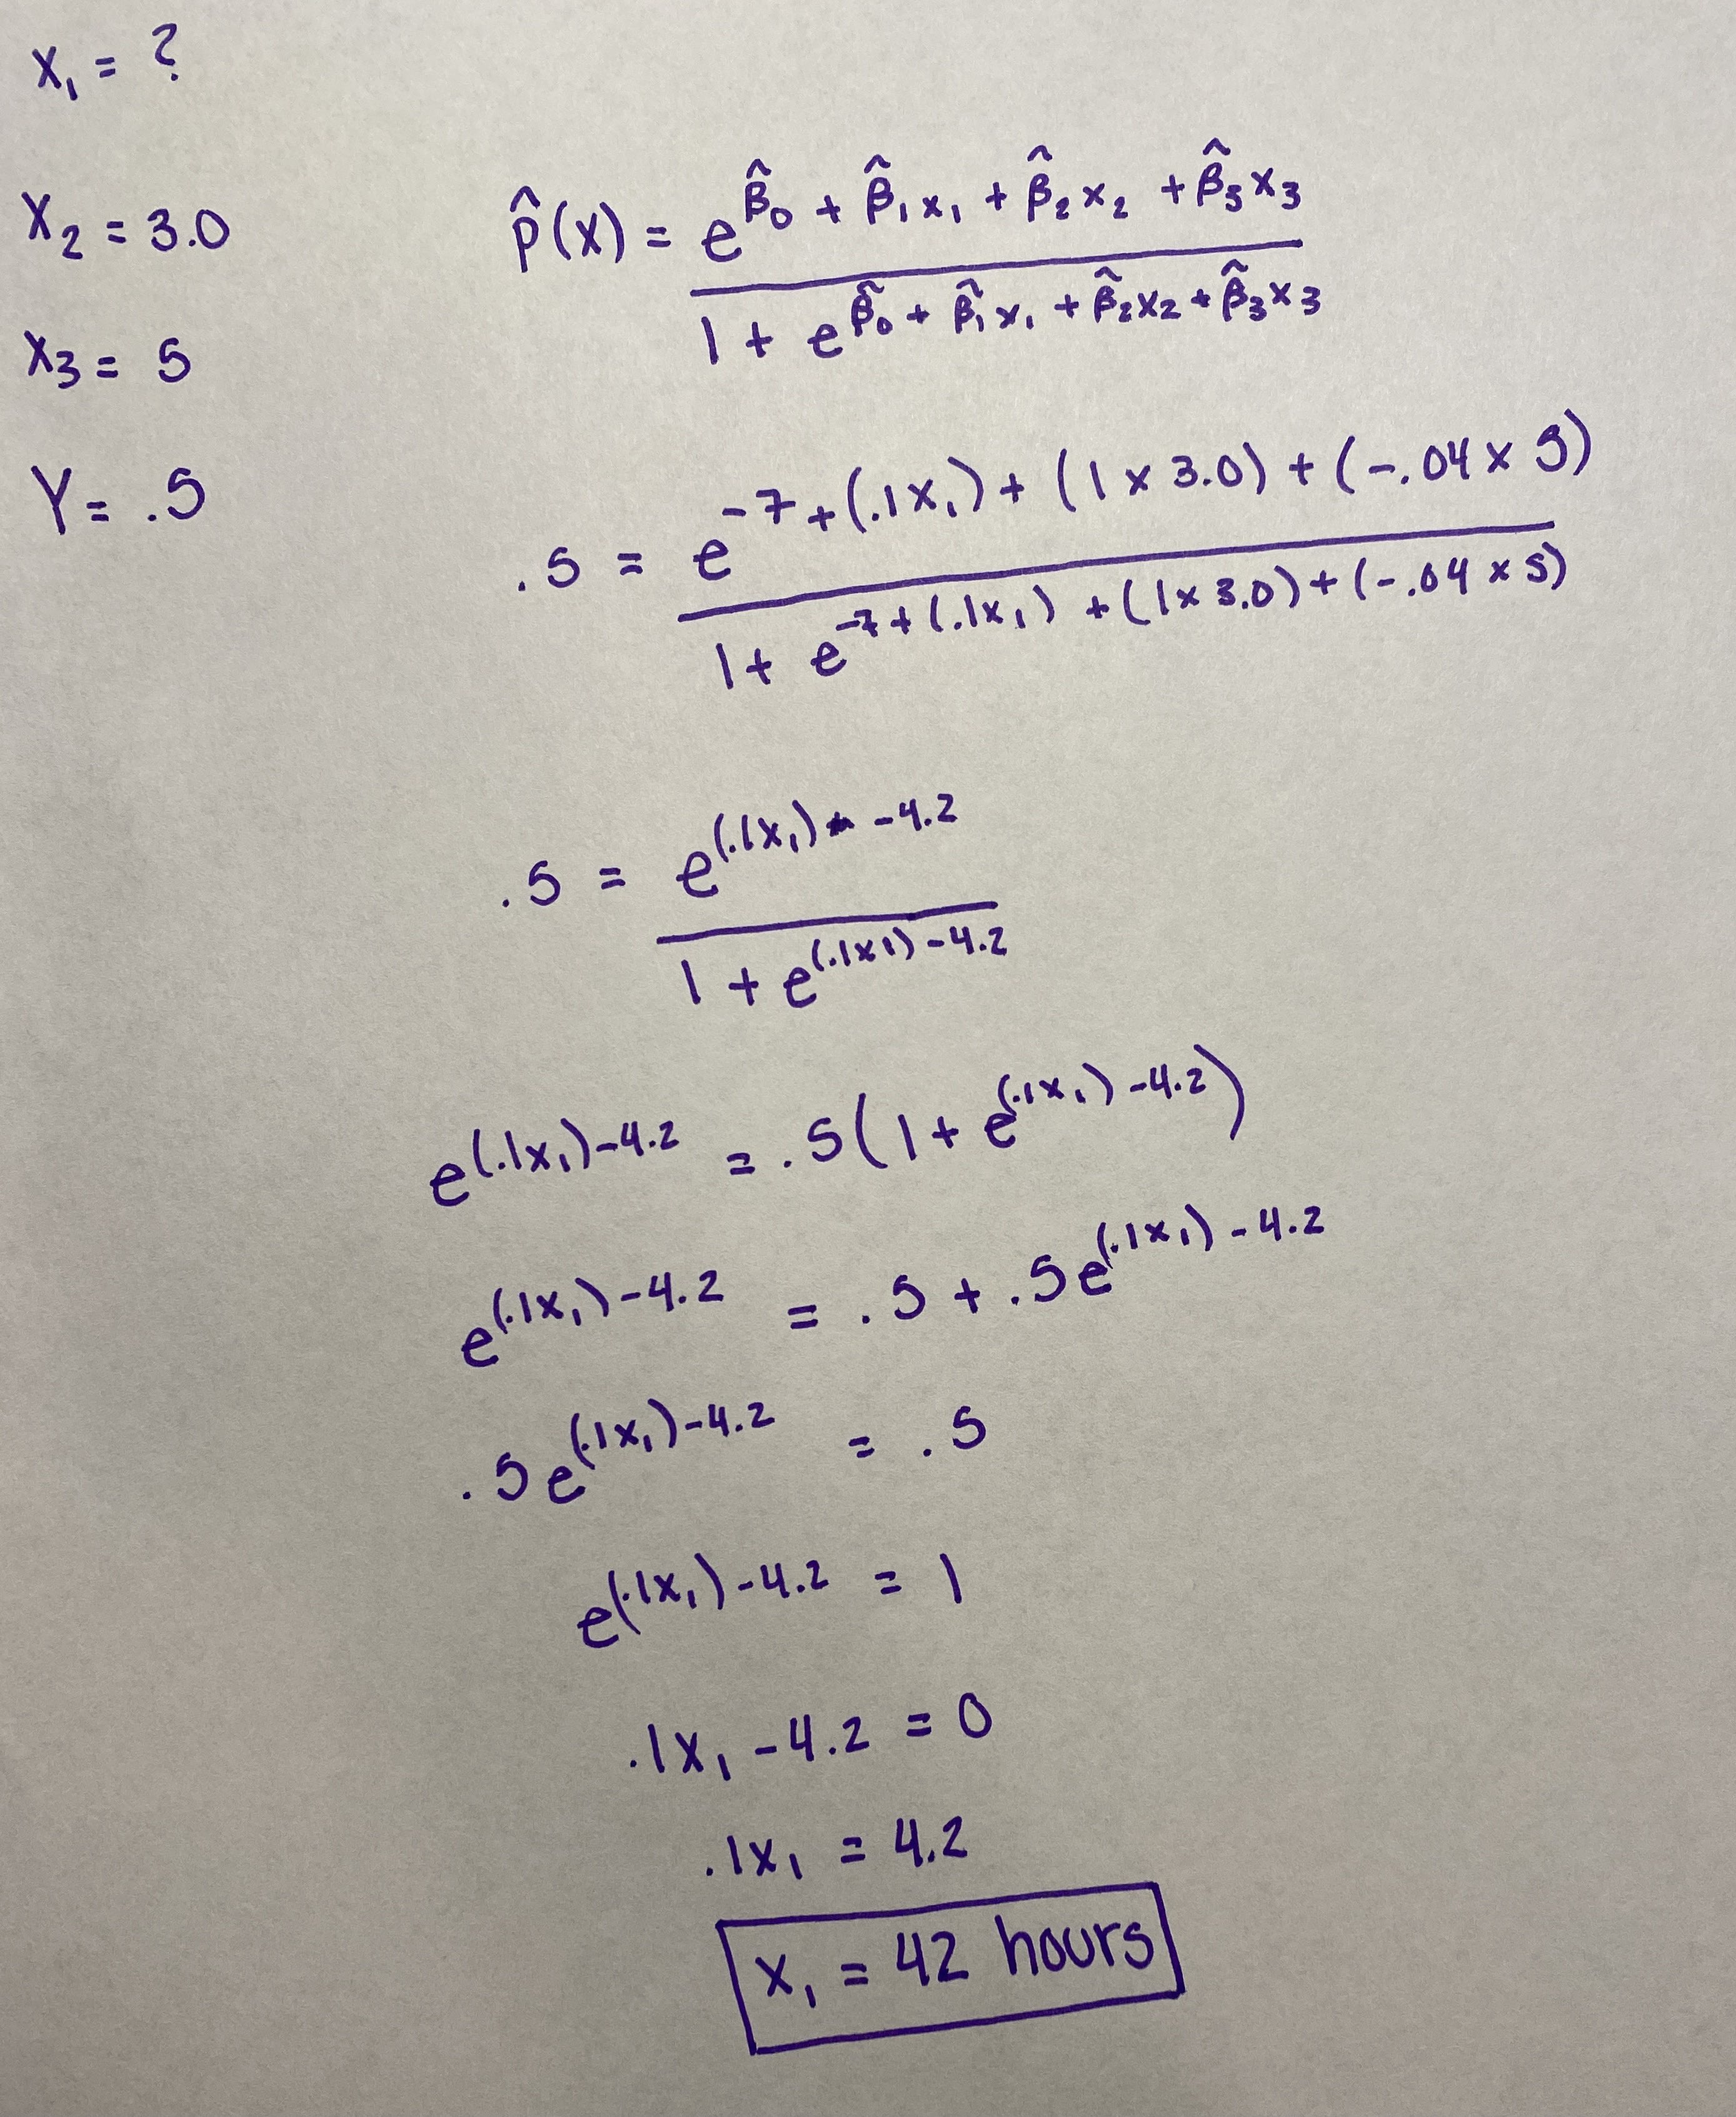 x₁ = ?
x₂ = 3.0
x₃ = 5
Y = .5
p̂(x) = e^(β̂₀ + β̂₁x₁ + β̂₂x₂ + β̂₃x₃) / 1 + e^(β̂₀ + β̂₁x₁ + β̂₂x₂ + β̂₃x₃)
.5 = e^(-7 + (.1x₁) + (1 x 3.0) + (-.04 x 5)) / 1 + e^(-7 + (.1x₁) + (1 x 3.0) + (-.04 x 5))
.5 = e^((.1x₁) - 4.2) / 1 + e^((.1x1) - 4.2)
e^((.1x₁) - 4.2) = .5(1 + e^((.1x₁) - 4.2))
e^((.1x₁) - 4.2) = .5 + .5e^((.1x₁) - 4.2)
.5e^((.1x₁) - 4.2) = .5
e^((.1x₁) - 4.2) = 1
.1x₁ - 4.2 = 0
.1x₁ = 4.2
x₁ = 42 hours